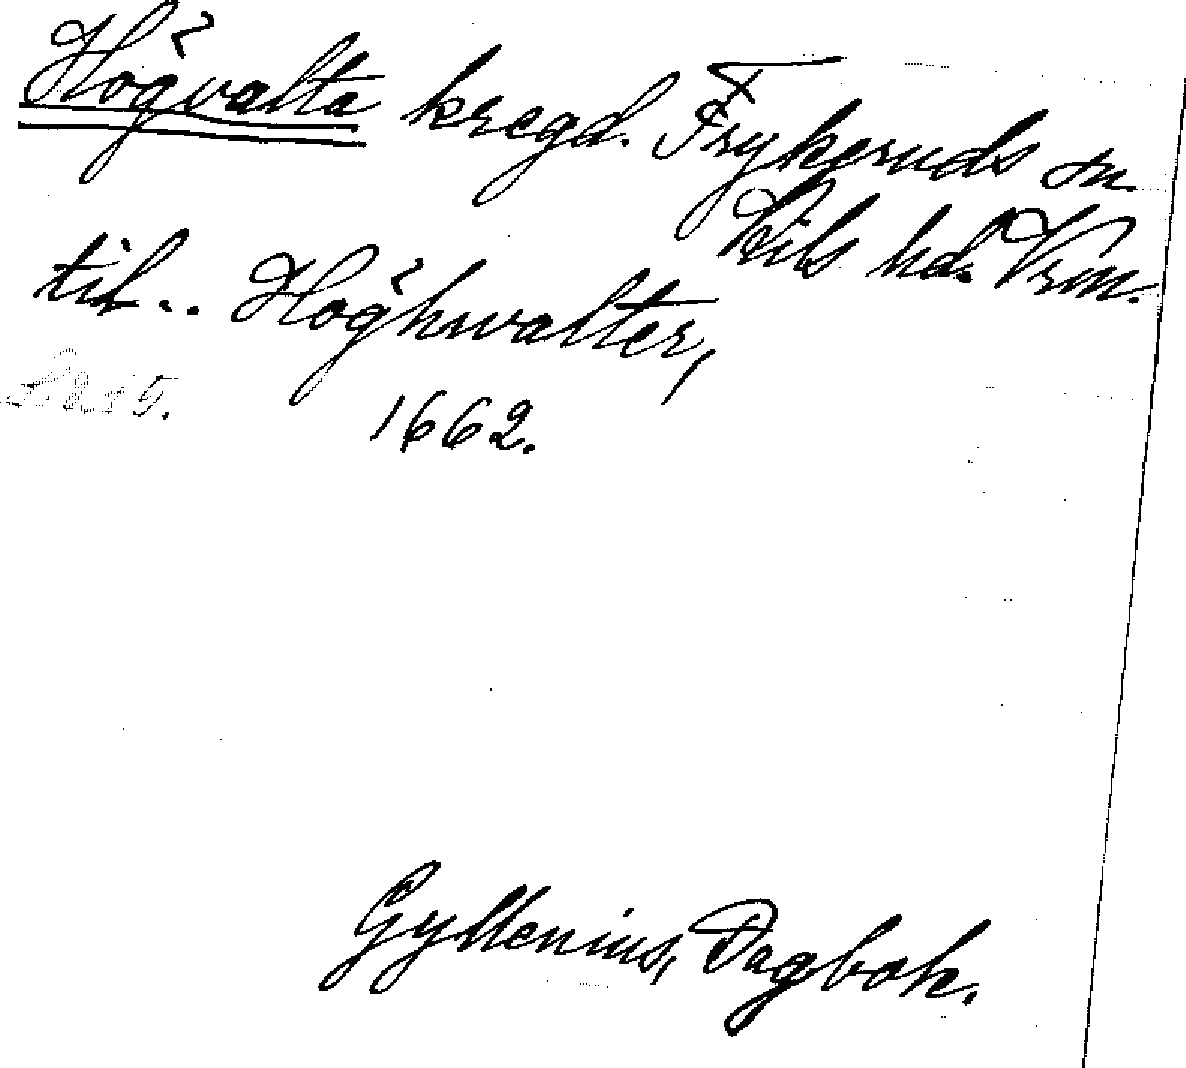 Högvalta kregd. Frykeruds sn
Kils hd. Vrm.
till.. Höghwalter,
1662.
Gyllenius, Dagbok.